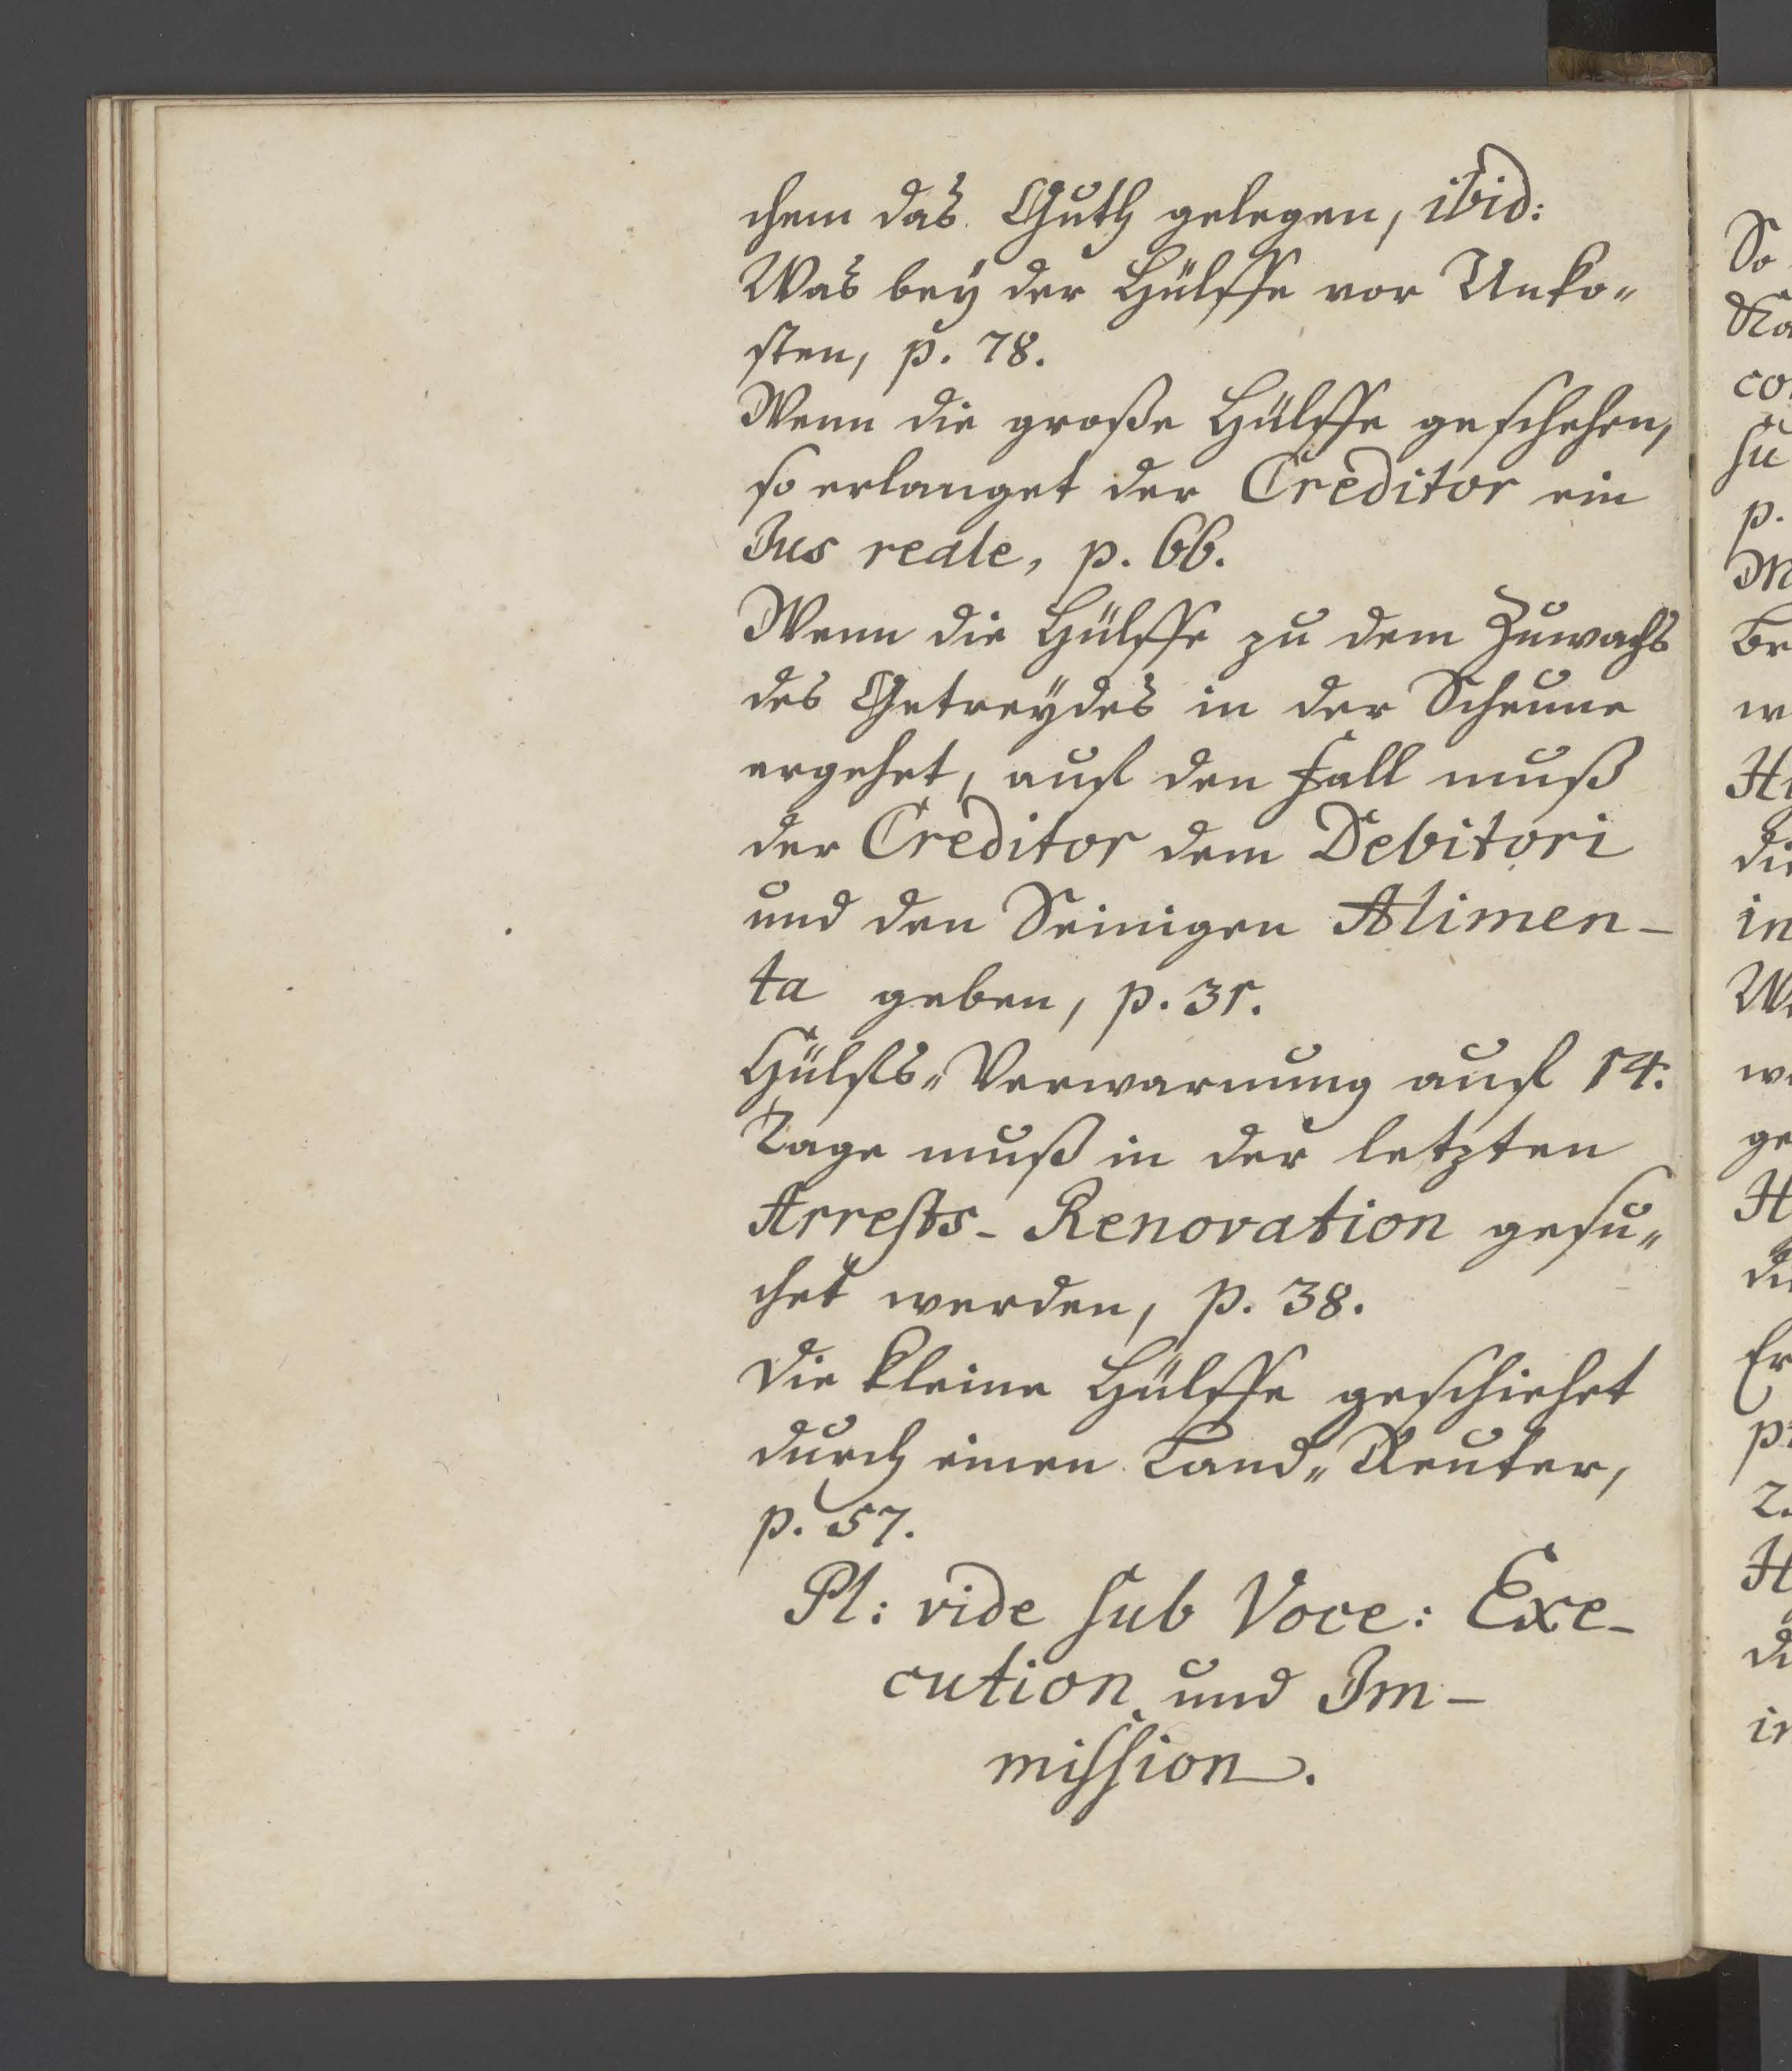 chem das Guth gelegen, ibid:
Was bey der Hülffe vor Unko-
sten, p. 78.
Wenn die große Hülffe geschehen,
so erlanget der Creditor ein
Jus reale, p. 66.
Wenn die Hülffe zu dem Zuwachs
des Getreydes in der Scheune
ergehet, auf den Fall muß
der Creditor dem Debitori
und den Seinigen Alimen-
ta geben, p. 31.
Hülfs-Verwarnung auf 14.
Tage muß in der letzten
Arrests-Renovation gesu-
chet werden, p. 38.
Die kleine Hülffe geschiehet
durch einen Land-Reuter,
p. 57.
Pl: vide sub Voce: Exe-
cution und Im-
mission.
So
co
su
p.
w
die
in
w
ge
p
2.